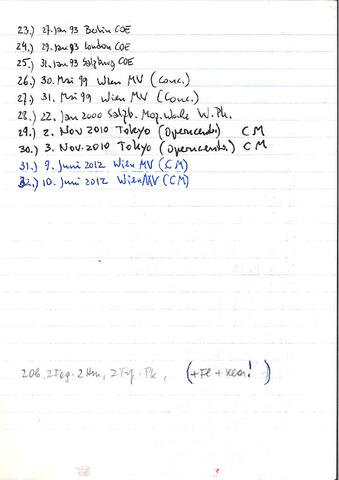 23.) 27. Jan 93 Berlin COE
24.) 29. Jan 93 London COE
25.) 31. Jan 93 Salzburg COE
26.) 30. Mai 99 Wien MV (Conc.)
27.) 31. Mai 99 Wien MV (Conc.)
28.) 22. Jan 2000 Salzb. Moz.Woche W.Ph.
29.) 2. Nov 2010 Tokyo CM
30.) 3. Nov. 2010 Tokyo CM
31.) 9. Juni 2012 Wien MV (CM)
32.) 10. Juni 2012 Wien MV (CM)
2 Ob. 2 Fag. 2 Hrn, 2 Trp. Pk, (+Fl + Klar!)